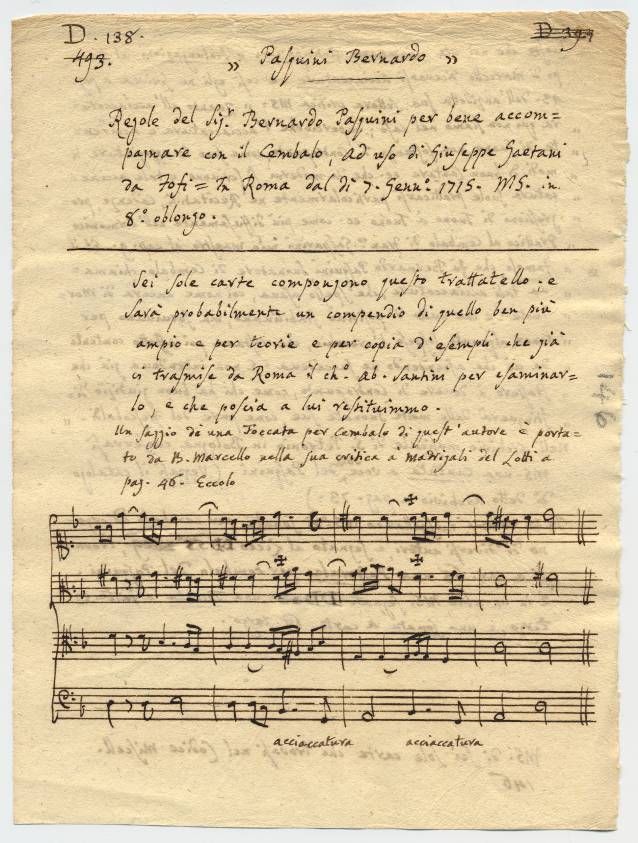 D. 138.
D 394
493.
„ Pasquini Bernardo „
Regole del Sig.r Bernardo Pasquini per bene accom=
pagnare con il Cembalo, ad uso di Giuseppe Gaetani
da Fofi = In Roma dal di 7. Genn.o 1715. MS. in
8.o oblongo.
Sei sole carte compongono questo trattatello, e
sarà probabilmente un compendio di quello ben più
ampio e per teorie e per copia d'esempli che già
ci trasmise da Roma il ch.o Ab. Santini per esaminar=
lo, e che poscia a lui restituimmo.
Un saggio di una Toccata per Cembalo di quest'autore è porta=
to da B. Marcello nella sua critica à Madrigali del Lotti a
pag. 46. Eccolo
acciaccatura acciaccatura
146